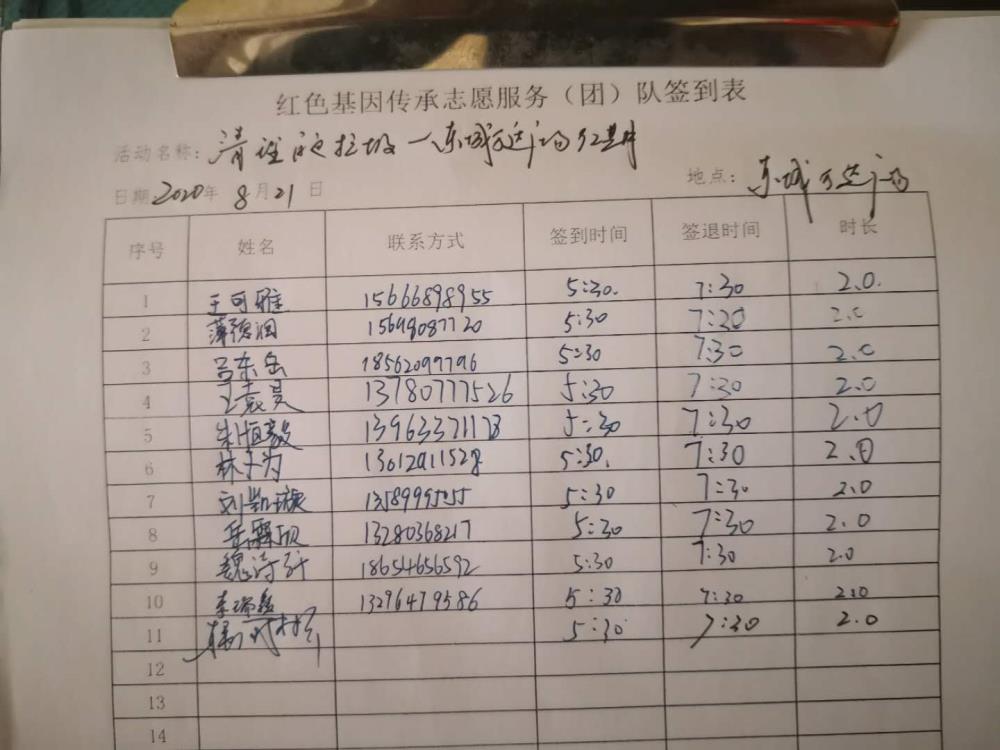 红色基因传承志愿服务（团）队签到表
活动名称：清理 垃圾—东城万达广场
日期 2020年 8月21日 地点：东城万达广场
序号 姓名 联系方式 签到时间 签退时间 时长
1 王可雅 15666898955 5:30. 7:30 2.0.
2 薄德润 15698087720 5:30 7:20 2.0
3 吕东岳 18562097796 5:30 7:30 2.0
4 13780777526 5:30 7:30 2.0
5 朱恒毅 13963371178 5:30 7:30 2.0
6 林子为 13012911528 5:30. 7:30 2.0
7 刘凯璇 5:30 7:30 2.0
8 13280368217 5:30 7:30 2.0
9 魏诗轩 18654656592 5:30 7:30 2.0
10 李瑞鑫 13296479586 5:30 7:30 2.0
11 5:30 7:30 2.0
12
13
14